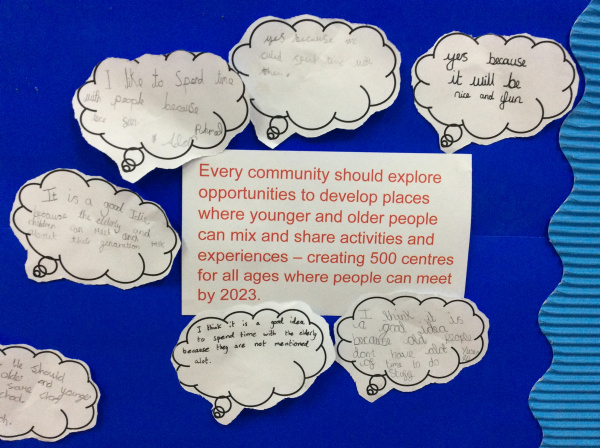 I like to spend time
with people because
yes because
time with
yes because
it will be
nice and fun
Every community should explore
opportunities to develop places
where younger and older people
can mix and share activities and
experiences – creating 500 centres
for all ages where people can meet
by 2023.
It is a good
because the elderly and
children can and mix
about their generation
I think it is a good idea
to spend time with the elderly
because they are not mentioned
alot.
I think it is
a good idea
because old people
dont have alot
time to do
should
and younger